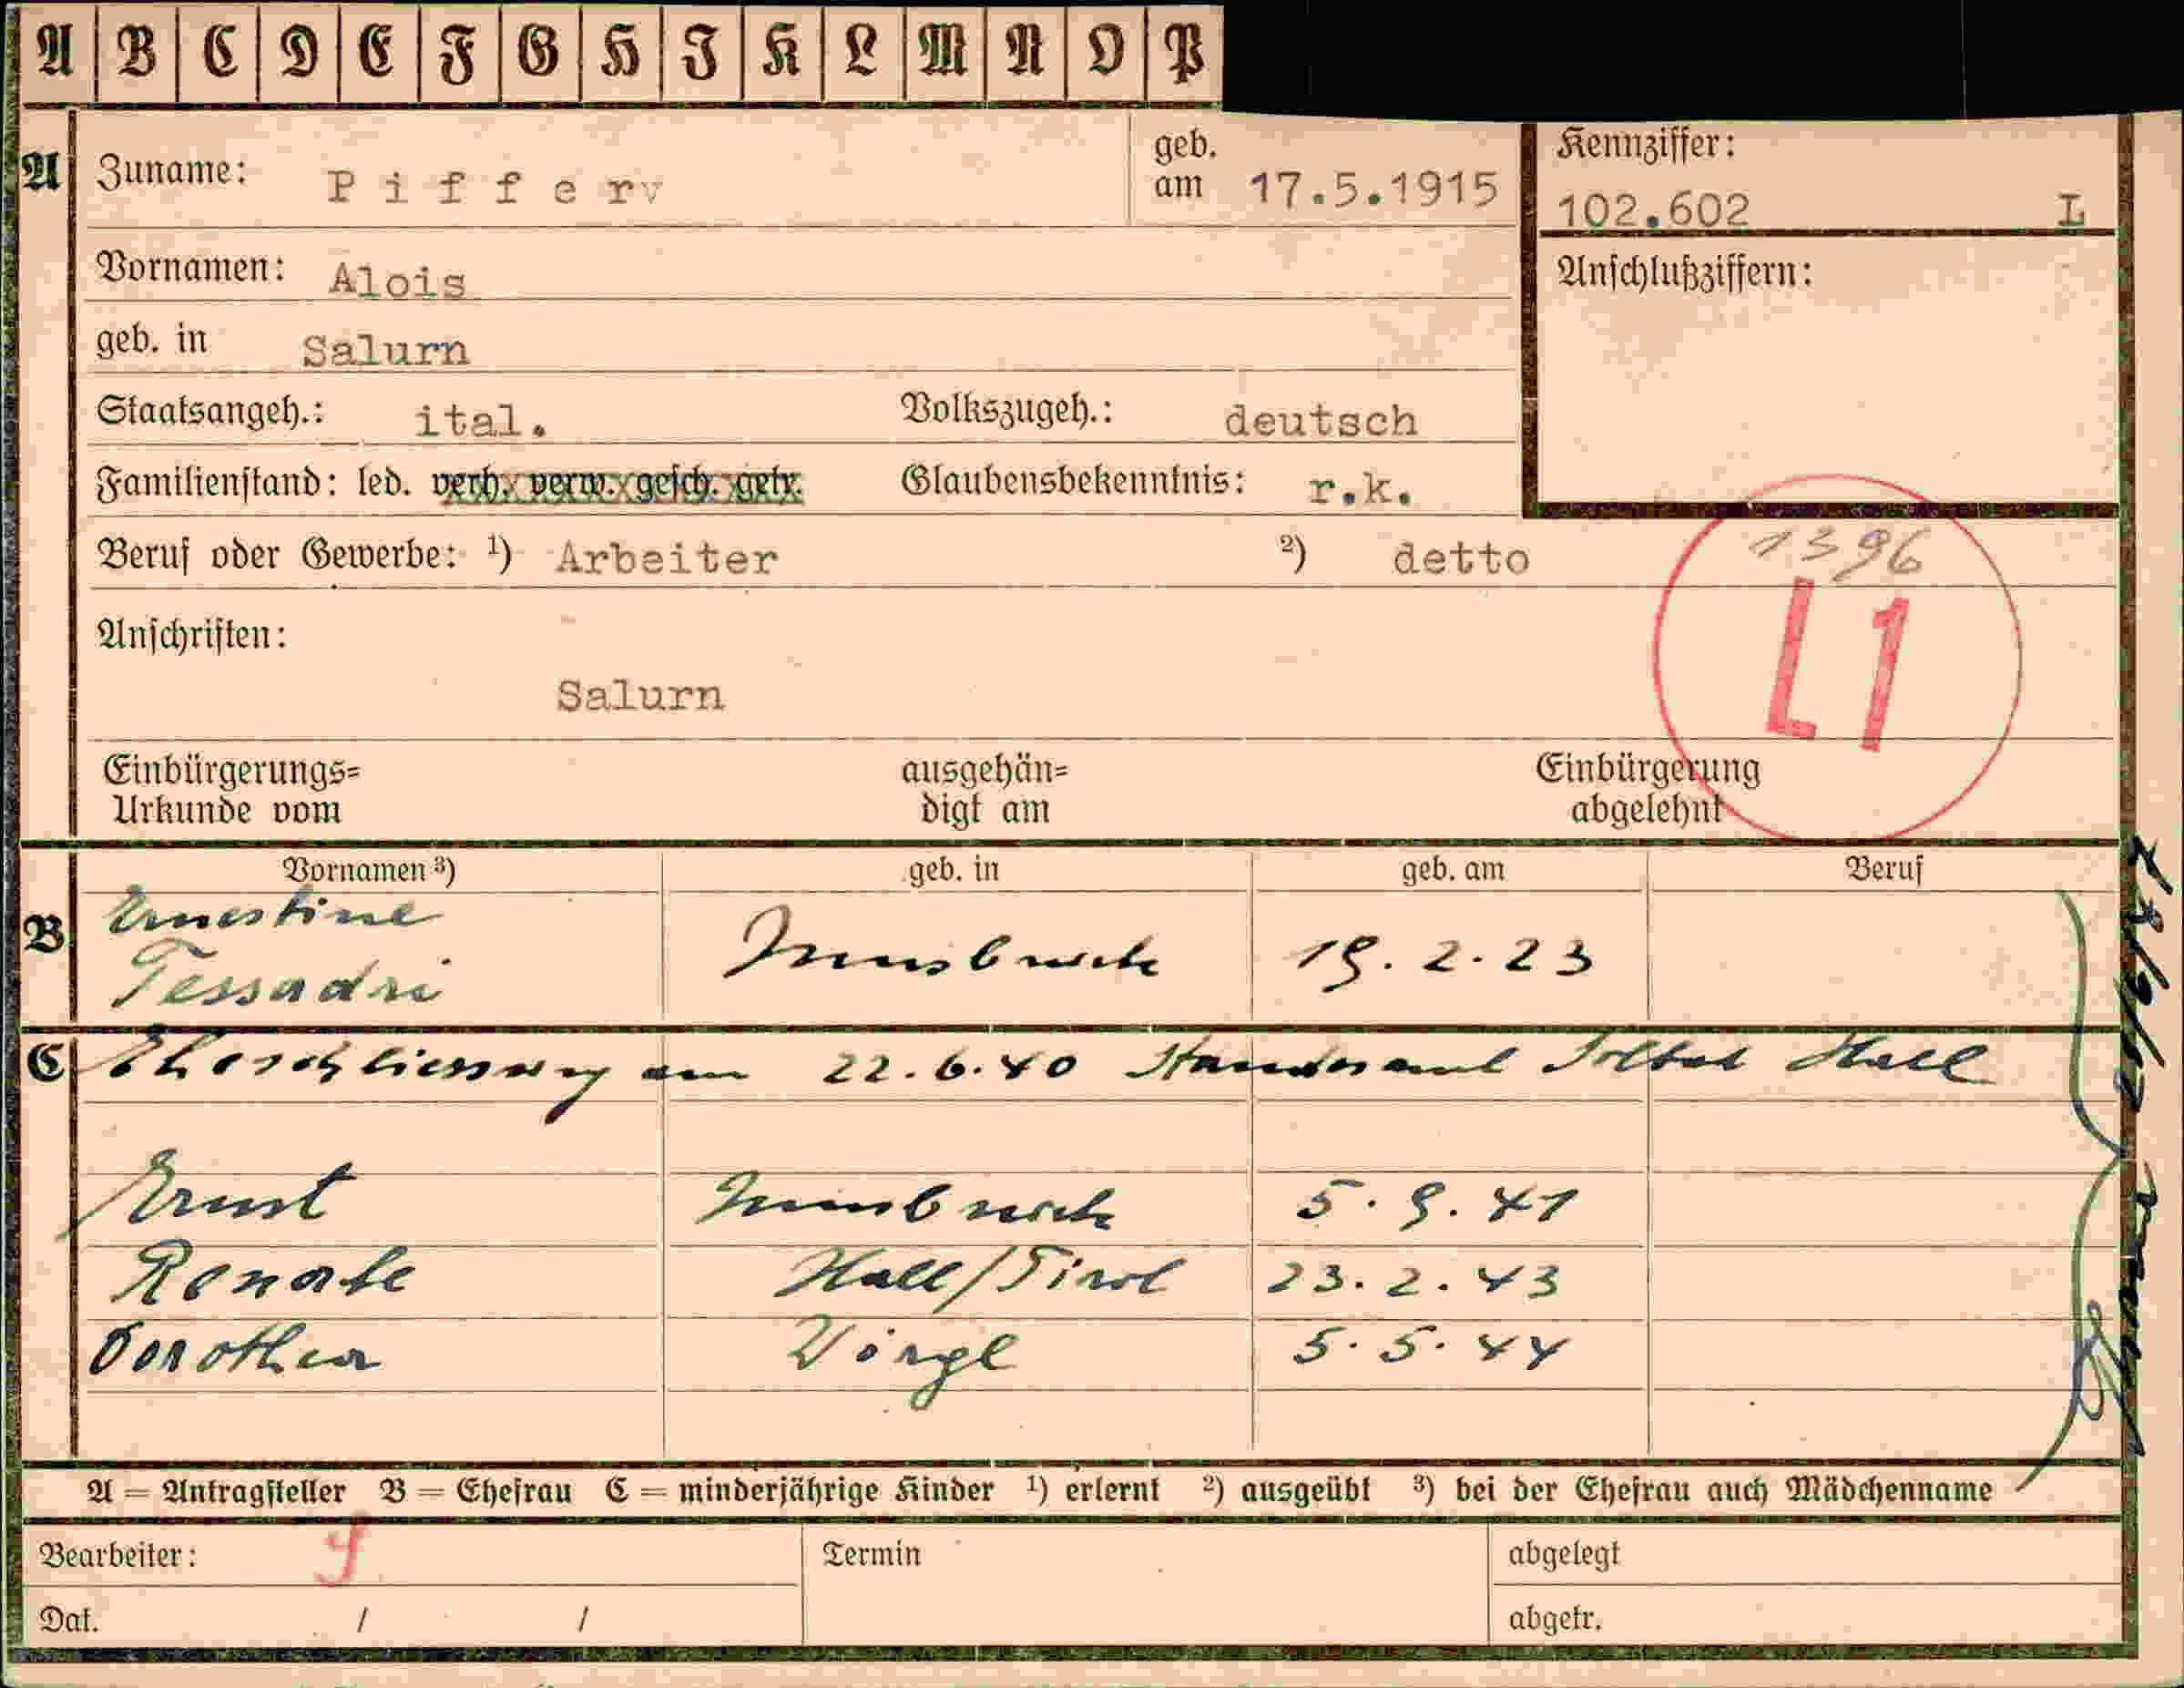 A B C D E F G H I K L M N O P
A Zuname: Piffer geb. am 17.5.1915 Kennziffer: 102.602 L
Vornamen: Alois Anschlußziffern:
geb. in Salurn
Staatsangeh.: ital. Volkszugeh.: deutsch
Familienstand: led. verh. verw. gesch. getr. Glaubensbekenntnis: r.k.
1396
Beruf oder Gewerbe: ¹) Arbeiter ²) detto
L1
Anschriften:
Salurn
Einbürgerungs= ausgehän= Einbürgerung
Urkunde vom digt am abgelehnt
Vornamen ³) geb. in geb. am Beruf
B Ernestine
Tessadri Innsbruck 19.2.23
C Eheschliessung am 22.6.40 Standesamt Solbad Hall
Ernst Innsbruck 5.9.41
Renate Hall/Tirol 23.2.43
Dorothea Wörgl 5.5.44
A = Antragsteller B = Ehefrau C = minderjährige Kinder ¹) erlernt ²) ausgeübt ³) bei der Ehefrau auch Mädchenname
Bearbeiter: Termin abgelegt
Dat. / / abgetr.